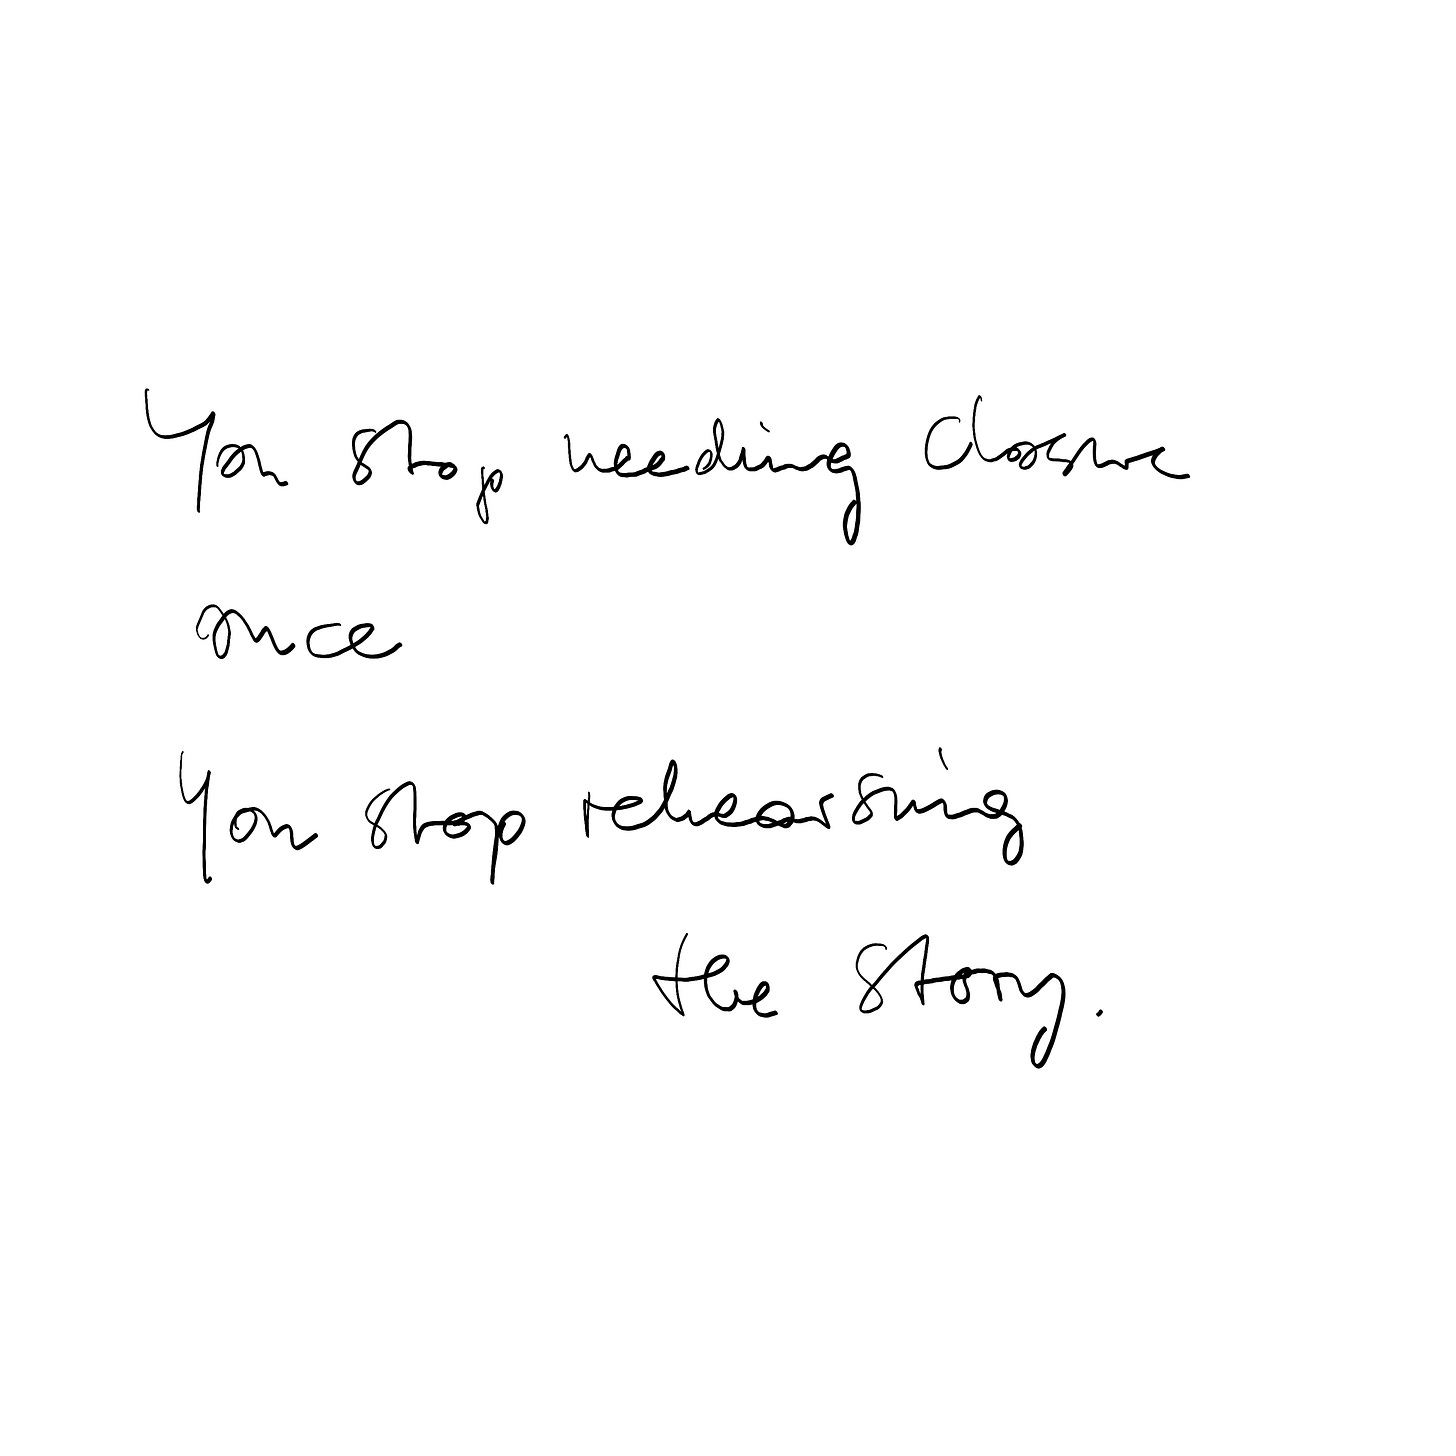 You stop needing closure
once
You stop rehearsing
the story.